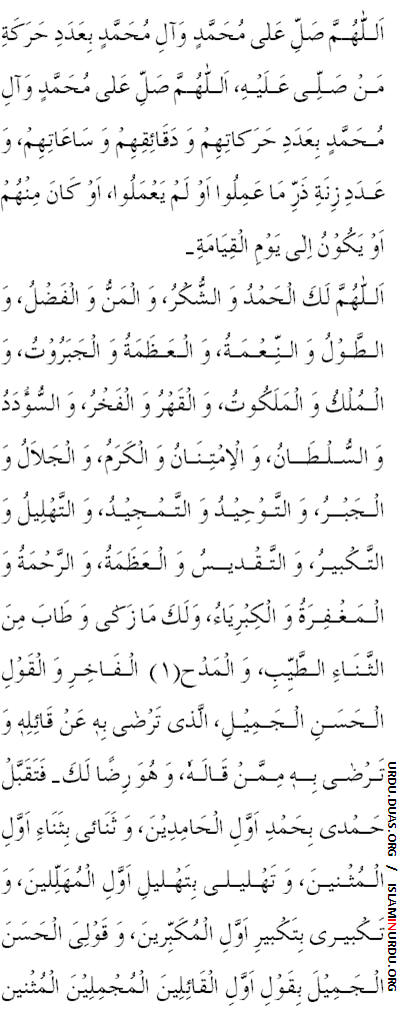 اَللّٰهُمَّ صَلِّ عَلٰى مُحَمَّدٍ وَآلِ مُحَمَّدٍ بِعَدَدِ حَرَكَةِ
مَنْ صَلّٰى عَلَيْهِ، اَللّٰهُمَّ صَلِّ عَلٰى مُحَمَّدٍ وَآلِ
مُحَمَّدٍ بِعَدَدِ حَرَكَاتِهِمْ وَ دَقَائِقِهِمْ وَ سَاعَاتِهِمْ، وَ
عَدَدِ زِنَةِ ذَرِّ مَا عَمِلُوا اَوْ لَمْ يَعْمَلُوا، اَوْ كَانَ مِنْهُمْ
اَوْ يَكُوْنُ اِلٰى يَوْمِ الْقِيَامَةِ۔
اَللّٰهُمَّ لَكَ الْحَمْدُ وَ الشُّكْرُ، وَ الْمَنُّ وَ الْفَضْلُ، وَ
الطَّوْلُ وَ النِّعْمَةُ، وَ الْعَظَمَةُ وَ الْجَبَرُوْتُ، وَ
الْمُلْكُ وَ الْمَلَكُوتُ، وَ الْقَهْرُ وَ الْفَخْرُ، وَ السُّؤْدَدُ
وَ السُّلْطَانُ، وَ الْاِمْتِنَانُ وَ الْكَرَمُ، وَ الْجَلَالُ وَ
الْجَبْرُ، وَ التَّوْحِيْدُ وَ التَّمْجِيْدُ، وَ التَّهْلِيْلُ وَ
التَّكْبِيرُ، وَ التَّقْدِيسُ وَ الْعَظَمَةُ، وَ الرَّحْمَةُ وَ
الْمَغْفِرَةُ وَ الْكِبْرِيَاءُ، وَلَكَ مَا زَكٰى وَ طَابَ مِنَ
الثَّنَاءِ الطَّيِّبِ، وَ الْمَدْحِ(١) الْفَاخِرِ وَ الْقَوْلِ
الْحَسَنِ الْجَمِيْلِ، الَّذى تَرْضٰى بِهٖ عَنْ قَائِلِهٖ وَ
تَرْضٰى بِهٖ مِمَّنْ قَالَهٗ، وَ هُوَ رِضًا لَكَ۔ فَتَقَبَّلْ
حَمْدى بِحَمْدِ اَوَّلِ الْحَامِدِيْنَ، وَ ثَنَائى بِثَنَاءِ اَوَّلِ
الْمُثْنِينَ، وَ تَهْلِيلى بِتَهْلِيلِ اَوَّلِ الْمُهَلِّلينَ، وَ
تَكْبِيرى بِتَكْبِيرِ اَوَّلِ الْمُكَبِّرِينَ، وَ قَوْلِىَ الْحَسَنَ
الْجَمِيْلَ بِقَوْلِ اَوَّلِ الْقَائِلِينَ الْمُجْمِلِيْنَ الْمُثْنين
URDU.DUAS.ORG / ISLAMINURDU.ORG